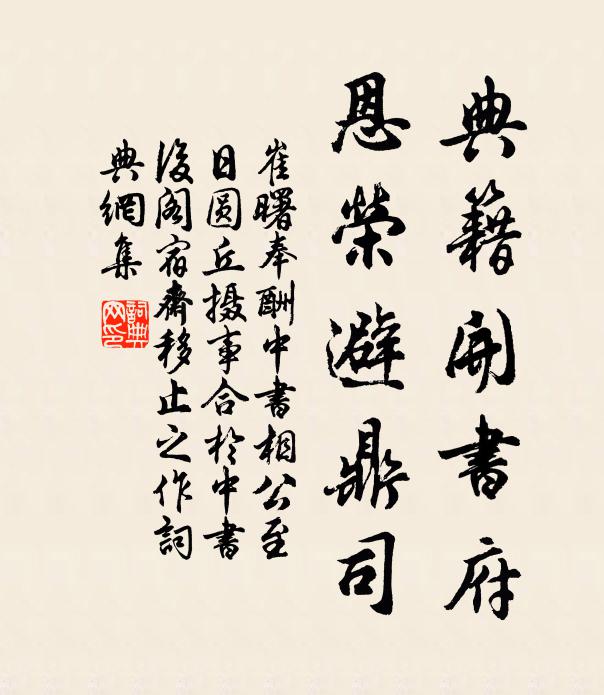 典籍開書府
恩榮避鼎司
崔曙奉酬中書相公至
日圓丘摄事合於中書
後閣宿齋移止之作詞
典網集
詞典
网印